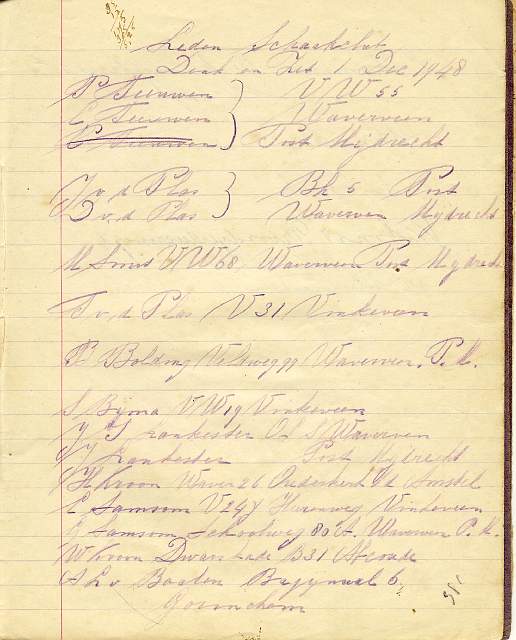 Leden Schaakclub
Denk en Zet 1 Dec 1948
P Teeuwen } V W 55
C Teeuwen } Waverveen
P Teeuwen Post Mijdrecht
J v. d Plas } Bh 5 Post
D v. d Plas Waverveen Mijdrecht
M Smis V W 68 Waverveen Post Mijdrecht
T v. d Plas V 31 Vinkeveen
P. Bolding Waverveen. P. M.
S Byma V W 19 Vinkeveen
J S Lankester Waverveen
J Lankester Post Mijdrecht
H Kroon Waver 26 Ouderkerk a/d Amstel
E Samsom V 247 Herenweg Vinkeveen
G Samsom Schoolweg 80 A. Waverveen P. M.
W Kroon B 31 Abcoude
A L v Baaten 6
Gorinchem